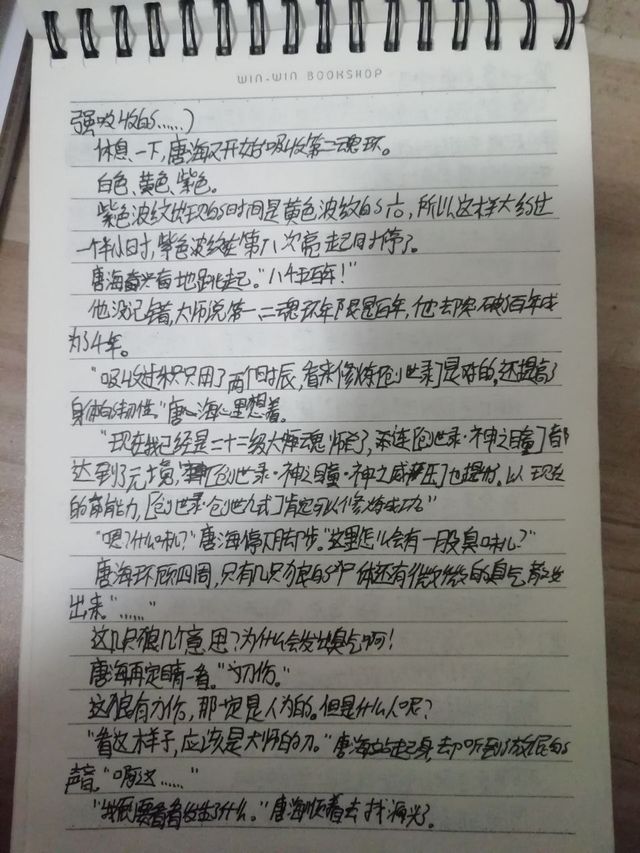 WIN-WIN BOOKSHOP
强吸收的……)
休息一下,唐海又开始吸收第二魂环。
白色、黄色、紫色。
紫色波纹出现的时间是黄色波纹的6倍,所以这样大约过
一个半小时,紫色波纹在第八次亮起时停了。
唐海奋兴奋地跳起。"八千年!"
他没记错,大师说第一、二魂环年限是百年,他却突破了百年成
为了千年。
"吸收过积只用了两个时辰,看来修炼[创世录]是对的,还提高了
身体的韧性。"唐海心里想着。
"现在我已经是二十二级大师魂师了,而连[创世录·神之目瞳]都
达到了元境,[创世录·神之目瞳·神之威严压]也提升。以现在
的能力,[创世录·创世九式]肯定可以修炼成功"
"嗯?什么味儿?"唐海停下脚步。"这里怎么会有一股臭味儿?"
唐海环顾四周,只有几只狼的尸体还有微微的臭气散发
出来。"……"
这几只狼几个意思?为什么会发出臭气啊!
唐海再定睛一看。"刀伤。"
这狼有刀伤,那一定是人为的。但是什么人呢?
"看这样子,应该是大师的刀。"唐海站起身,却听到了放屁的
声音。"啊这……"
"我倒要看看发生了什么。"唐海顺着去找